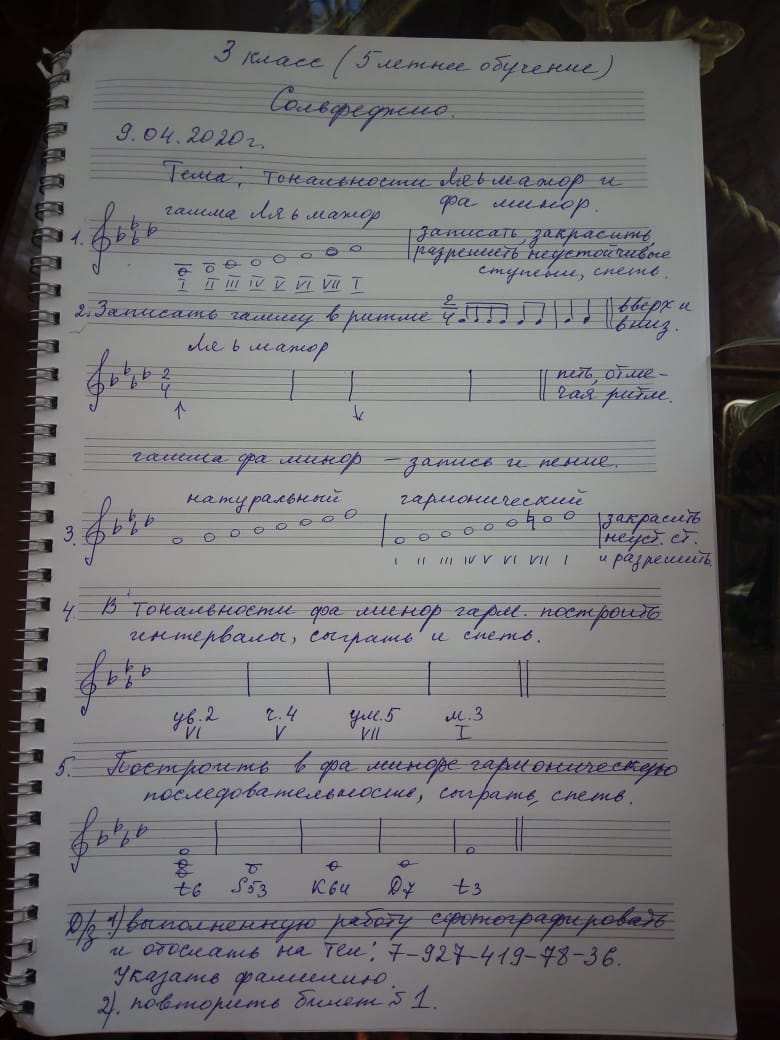 3 класс (5 летнее обучение)
Сольфеджио.
9.04.2020г.
Тема: тональности Ля ь мажор и
фа минор.
гамма Ля ь мажор
1.
записать, закрасить,
разрешить неустойчивые
ступени, спеть.
I II III IV V VI VII I
2. Записать гамму в ритме 2/4 вверх и
вниз.
Ля ь мажор
2/4
петь, отме-
чая ритм.
гамма фа минор – запись и пение.
натуральный гармонический
3.
закрасить
неуст. ст.
и разрешить.
I II III IV V VI VII I
4. В тональности фа минор гарм. построить
интервалы, сыграть и спеть.
ув.2 ч.4 ум.5 м.3
VI V VII I
5. Построить в фа миноре гармоническую
последовательность, сыграть, спеть.
t6 S53 K64 D7 t3
Д/з 1) выполненную работу сфотографировать
и отослать на тел: 7-927-419-78-36.
Указать фамилию.
2). повторить билет №1.